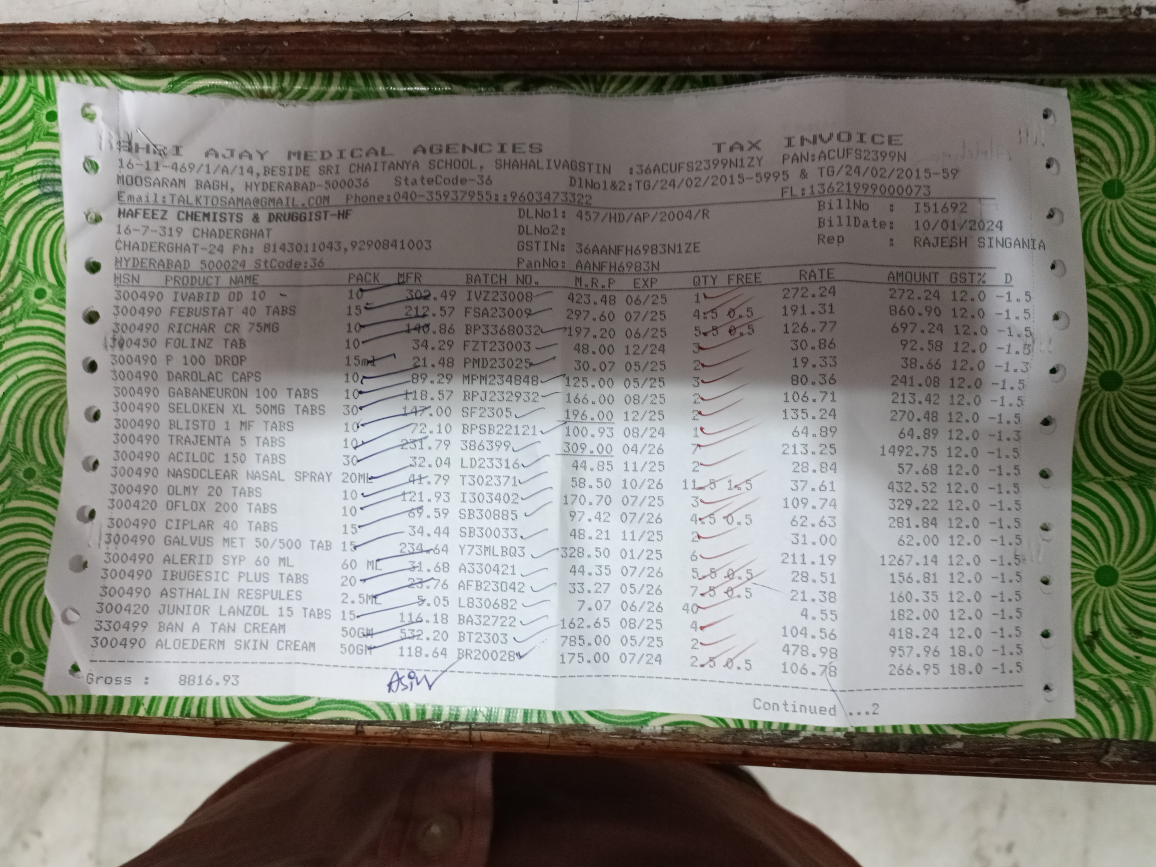 SHRI AJAY MEDICAL AGENCIES TAX INVOICE
16-11-469/1/A/14,BESIDE SRI CHAITANYA SCHOOL, SHAHALIVAGSTIN :36ACUFS2399N1ZY PAN:ACUFS2399N
MOOSARAM BAGH, HYDERABAD-500036 StateCode-36 DlNo1&2:TG/24/02/2015-5995 & TG/24/02/2015-59
Email:TALKTOSAMA@GMAIL.COM Phone:040-35937955::9603473322 FL:13621999000073
HAFEEZ CHEMISTS & DRUGGIST-HF DLNo1: 457/HD/AP/2004/R BillNo : I51692
16-7-319 CHADERGHAT DLNo2: BillDate: 10/01/2024
CHADERGHAT-24 Ph: 8143011043,9290841003 GSTIN: 36AANFH6983N1ZE Rep : RAJESH SINGANIA
HYDERABAD 500024 StCode:36 PanNo: AANFH6983N
HSN PRODUCT NAME PACK MFR BATCH NO. M.R.P EXP QTY FREE RATE AMOUNT GST% D
300490 IVABID OD 10 10 302.49 IVZ23008 423.48 06/25 1 272.24 272.24 12.0 -1.5
300490 FEBUSTAT 40 TABS 15 212.57 FSA23009 297.60 07/25 4.5 0.5 191.31 860.90 12.0 -1.5
300490 RICHAR CR 75MG 10 140.86 BP3368032 197.20 06/25 5.5 0.5 126.77 697.24 12.0 -1.5
300450 FOLINZ TAB 10 34.29 FZT23003 48.00 12/24 3 30.86 92.58 12.0 -1.5
300490 P 100 DROP 15ml 21.48 PMD23025 30.07 05/25 2 19.33 38.66 12.0 -1.3
300490 DAROLAC CAPS 10 89.29 MPM234848 125.00 05/25 3 80.36 241.08 12.0 -1.5
300490 GABANEURON 100 TABS 10 118.57 BPJ232932 166.00 08/25 2 106.71 213.42 12.0 -1.5
300490 SELOKEN XL 50MG TABS 30 147.00 SF2305 196.00 12/25 2 135.24 270.48 12.0 -1.5
300490 BLISTO 1 MF TABS 10 72.10 BPSB22121 100.93 08/24 1 64.89 64.89 12.0 -1.3
300490 TRAJENTA 5 TABS 10 231.79 386399 309.00 04/26 7 213.25 1492.75 12.0 -1.5
300490 ACILOC 150 TABS 30 32.04 LD23316 44.85 11/25 2 28.84 57.68 12.0 -1.5
300490 NASOCLEAR NASAL SPRAY 20ML 41.79 T302371 58.50 10/26 11.5 1.5 37.61 432.52 12.0 -1.5
300490 OLMY 20 TABS 10 121.93 I303402 170.70 07/25 3 109.74 329.22 12.0 -1.5
300420 OFLOX 200 TABS 10 69.59 SB30885 97.42 07/26 4.5 0.5 62.63 281.84 12.0 -1.5
300490 CIPLAR 40 TABS 15 34.44 SB30033 48.21 11/25 2 31.00 62.00 12.0 -1.5
300490 GALVUS MET 50/500 TAB 15 234.64 Y73MLBQ3 328.50 01/25 6 211.19 1267.14 12.0 -1.5
300490 ALERID SYP 60 ML 60 ML 31.68 A330421 44.35 07/26 5.5 0.5 28.51 156.81 12.0 -1.5
300490 IBUGESIC PLUS TABS 20 23.76 AFB23042 33.27 05/26 7.5 0.5 21.38 160.35 12.0 -1.5
300490 ASTHALIN RESPULES 2.5ML 5.05 L830682 7.07 06/26 40 4.55 182.00 12.0 -1.5
300420 JUNIOR LANZOL 15 TABS 15 116.18 BA32722 162.65 08/25 4 104.56 418.24 12.0 -1.5
330499 BAN A TAN CREAM 50GM 532.20 BT2303 785.00 05/25 2 478.98 957.96 18.0 -1.5
300490 ALOEDERM SKIN CREAM 50GM 118.64 BR20028 175.00 07/24 2.5 0.5 106.78 266.95 18.0 -1.5
Gross : 8816.93
Continued ...2